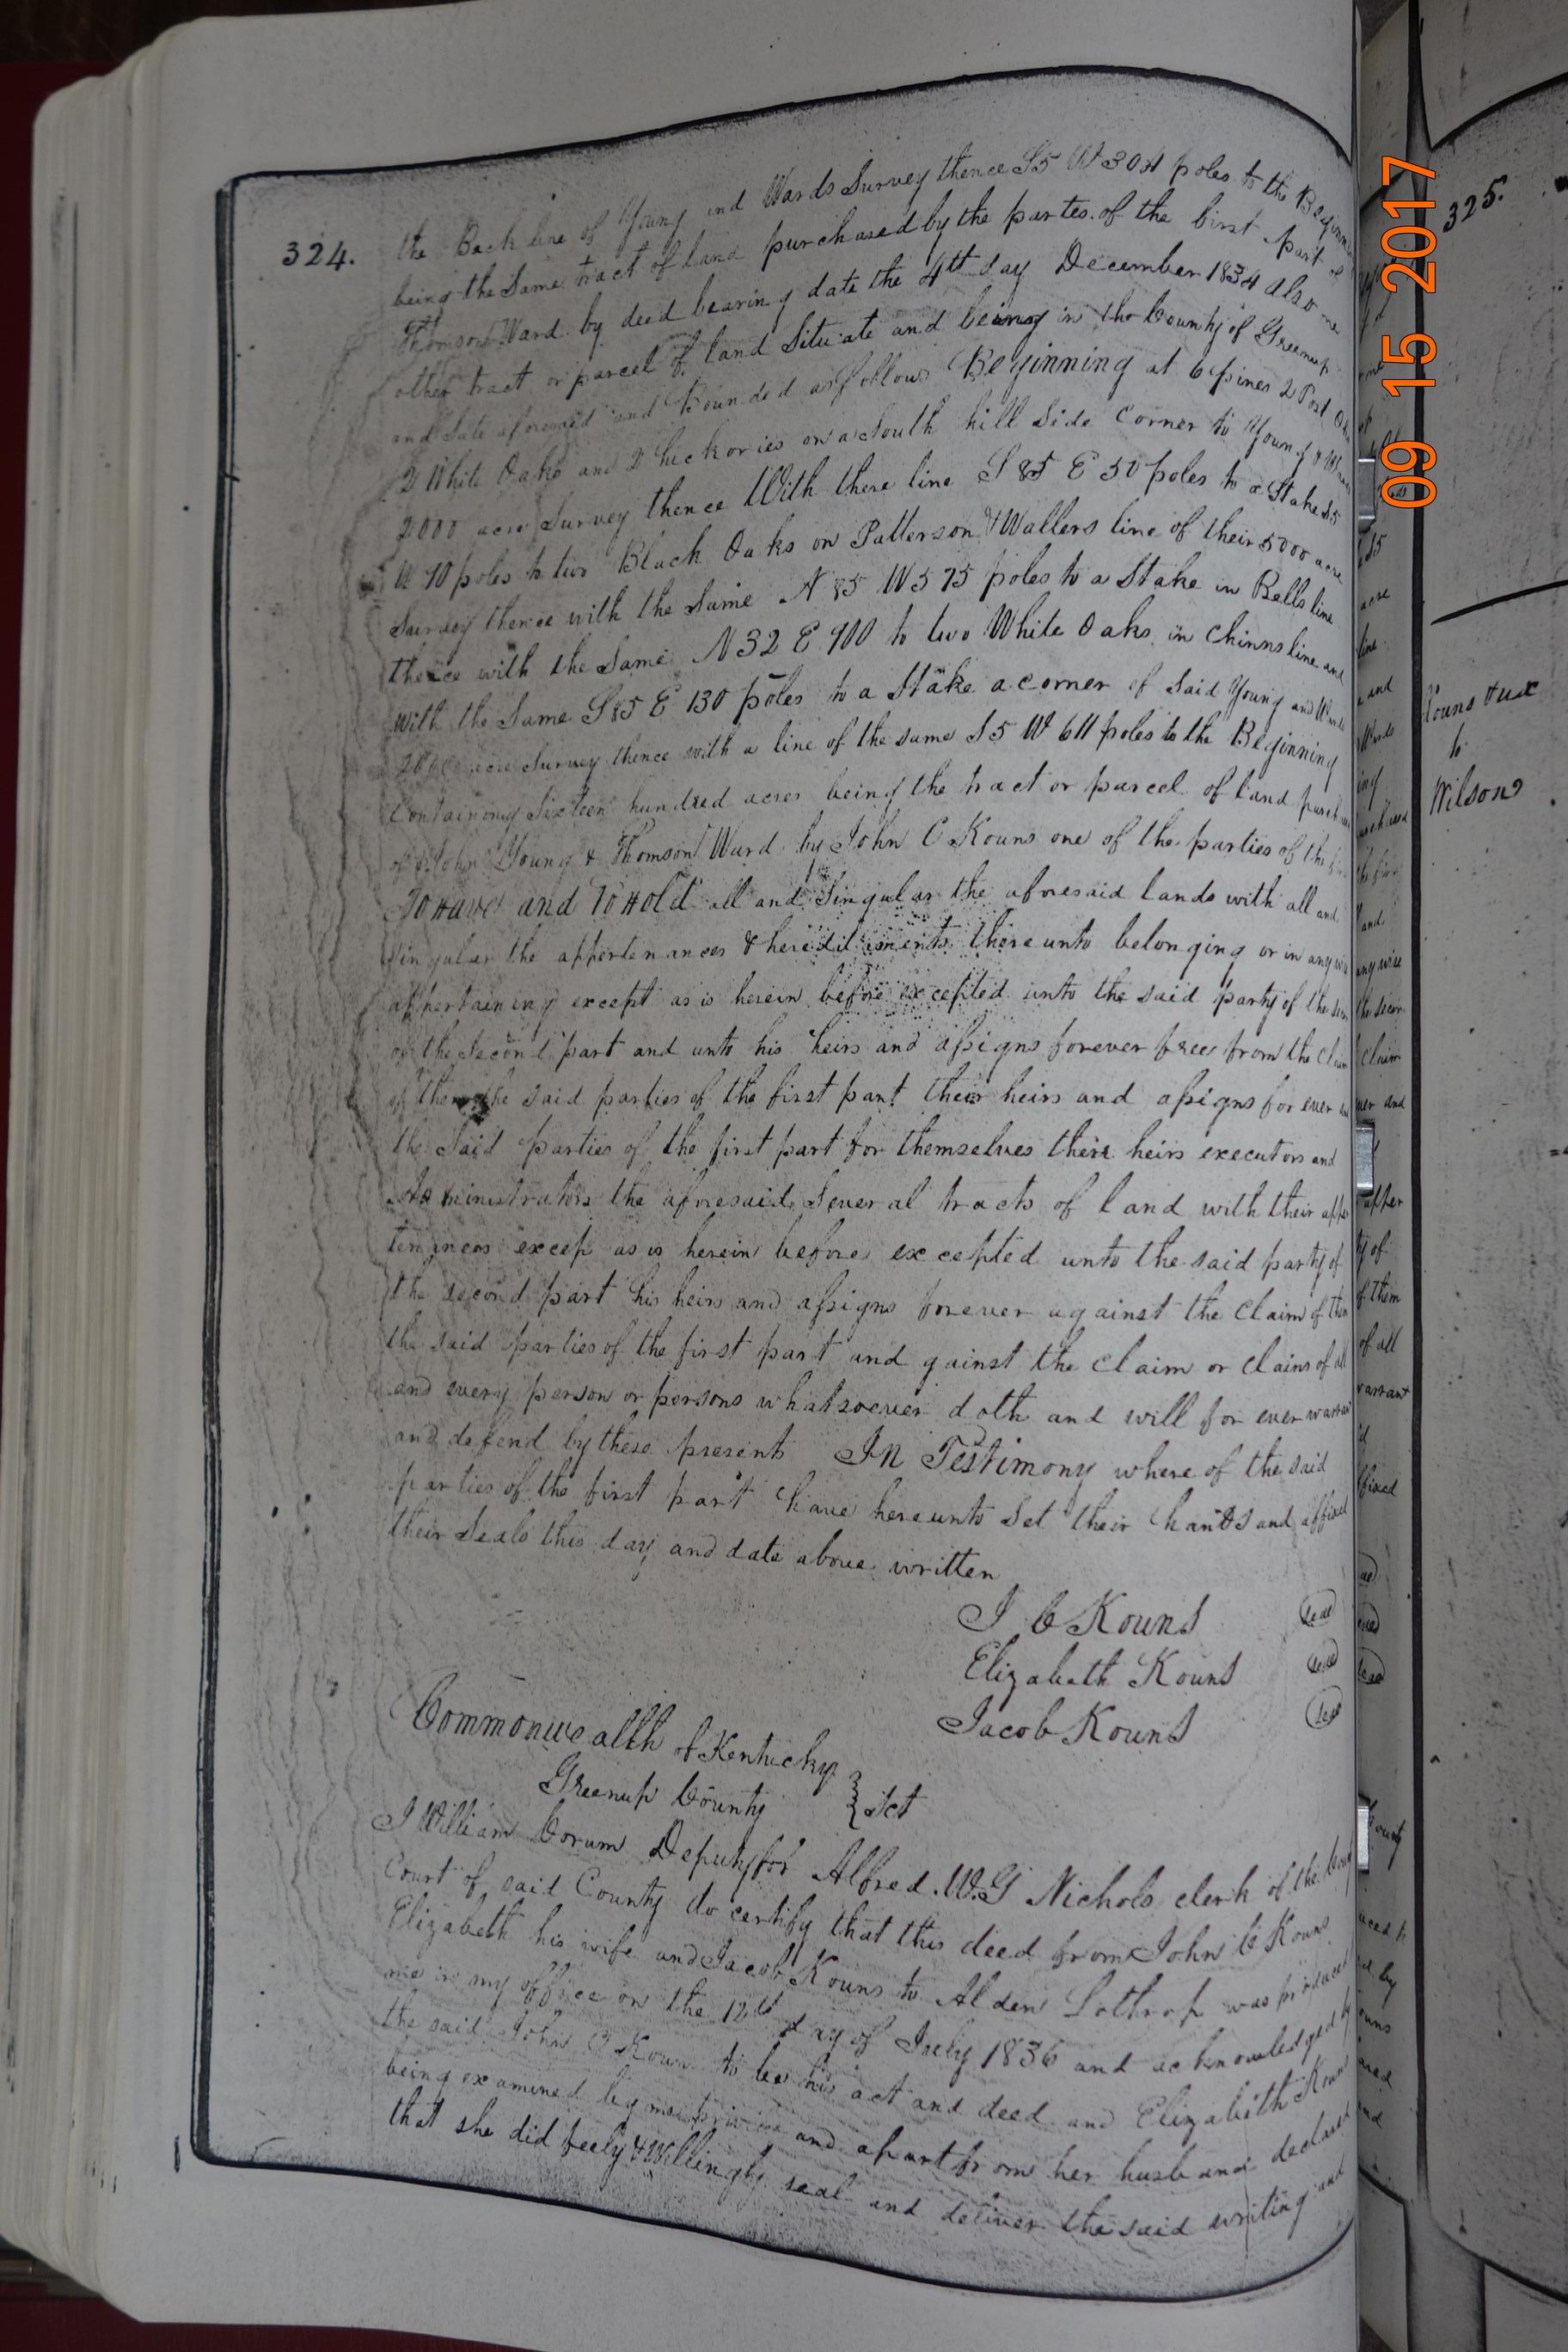 324.
the Back line of Young and Wards Survey thence S5 W 304 poles to the Beginn
being the Same tract of land purchased by the partes of the first part of
Thomson Ward by deed bearing date the 4th day December 1834 also one
other tract or parcel of land Situate and being in the County of Greenup
and State aforesaid and Bounded as follows Beginning at 6 pines 2 Post Oaks
2 White Oaks and 2 hickories on a South hill side Corner to Young &
2000 acre Survey thence With there line S 85 E 50 poles to a Stake S5
W 90 poles to two Black Oaks on Patterson & Wallers line of their 5000 acre
Survey thence with the Same N 85 W 575 poles to a Stake in Bells line
thence with the Same N32 E 900 to two White Oaks in Chinns line and
with the Same S85 E 130 poles to a Stake a corner of Said Young and Wards
acre Survey thence with a line of the same S5 W 611 poles to the Beginning
Containing Sixteen hundred acres being the tract or parcel of land
of John Young & Thomson Ward by John C Kouns one of the parties of the
To Have and To Hold all and Singular the aforesaid lands with all and
singular the appertenances & herediliments thereunto belonging or in any
appertaining except as is herein before excepted unto the said party of the
of the Second part and unto his heirs and assigns forever free from the Claim
of them the said parties of the first part their heirs and assigns for ever
the Said parties of the first part for themselves there heirs executors and
Administrators the aforesaid Several tracts of land with their apper
tenances excep as is herein before excepted unto the said party of
the second part his heirs and assigns forever against the Claim of them
the said parties of the first part and gainst the Claim or Claims of all
and every person or persons whatsoever doth and will for ever warrant
and defend by these presents In Testimony where of the said
parties of the first part have hereunto Set their hands and affixed
their Seals this day and date above written
J C Kouns Seal
Elizabeth Kouns Seal
Jacob Kouns Seal
Commonwealth of Kentucky
Greenup County } Sct
I William Corum Deputy for Alfred W.G Nichols clerk of the
Court of said County do certify that this deed from John C Kouns
Elizabeth his wife and Jacob Kouns to Alden Lothrop was produced
me in my office on the 12th day of July 1836 and acknowledged by
the said John C Kouns to be his act and deed and Elizabeth Kouns
being examined by me and apart from her husband declared
that she did feely & Willingly seal and deliver the said writing and
09 15 2017
325.
Kouns & ux
to
Wilson